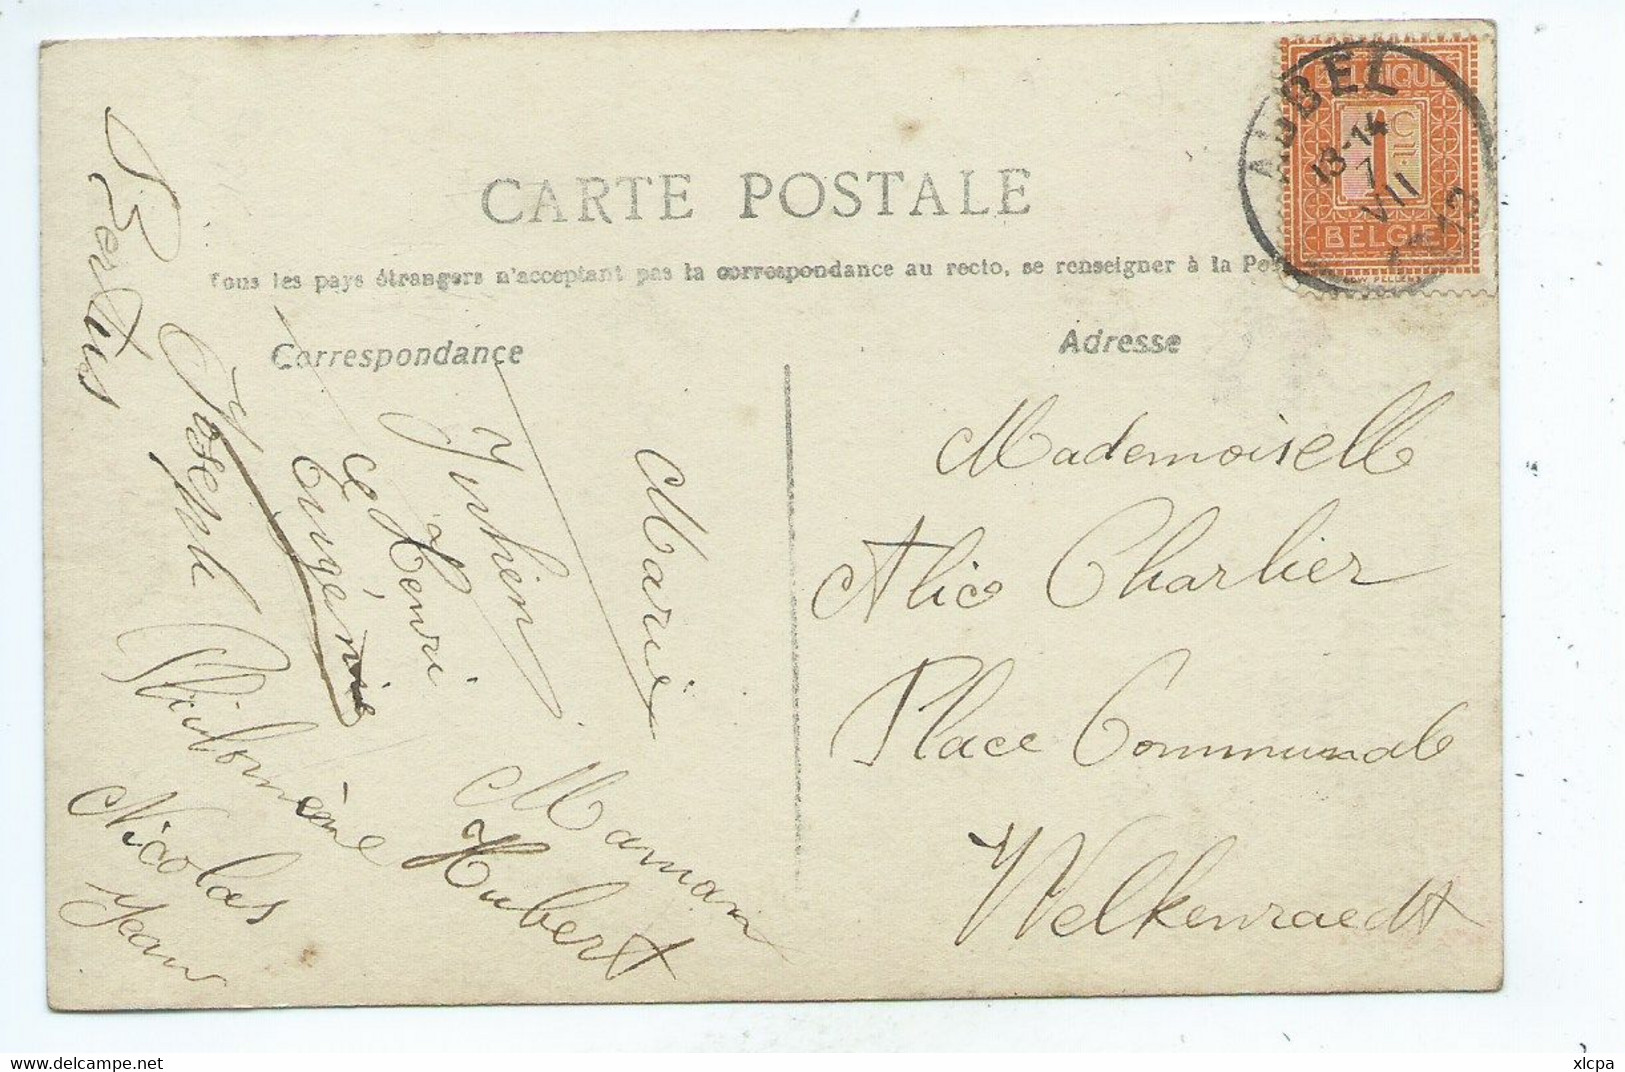 CARTE POSTALE
Tous les pays étrangers n'acceptent pas la correspondance au recto, se renseigner à la Pos
Correspondance
Adresse
BELGIQUE
1 C
BELGIE
13-14
7
VII
Bertus
Joseph
Eugénie
ce Henri
Marie
Philomène
Nicolas
Jean
Maman
Hubert
Mademoiselle
Alice Charlier
Place Communale
Welkenraedt
Delcampe.net
xlcpa